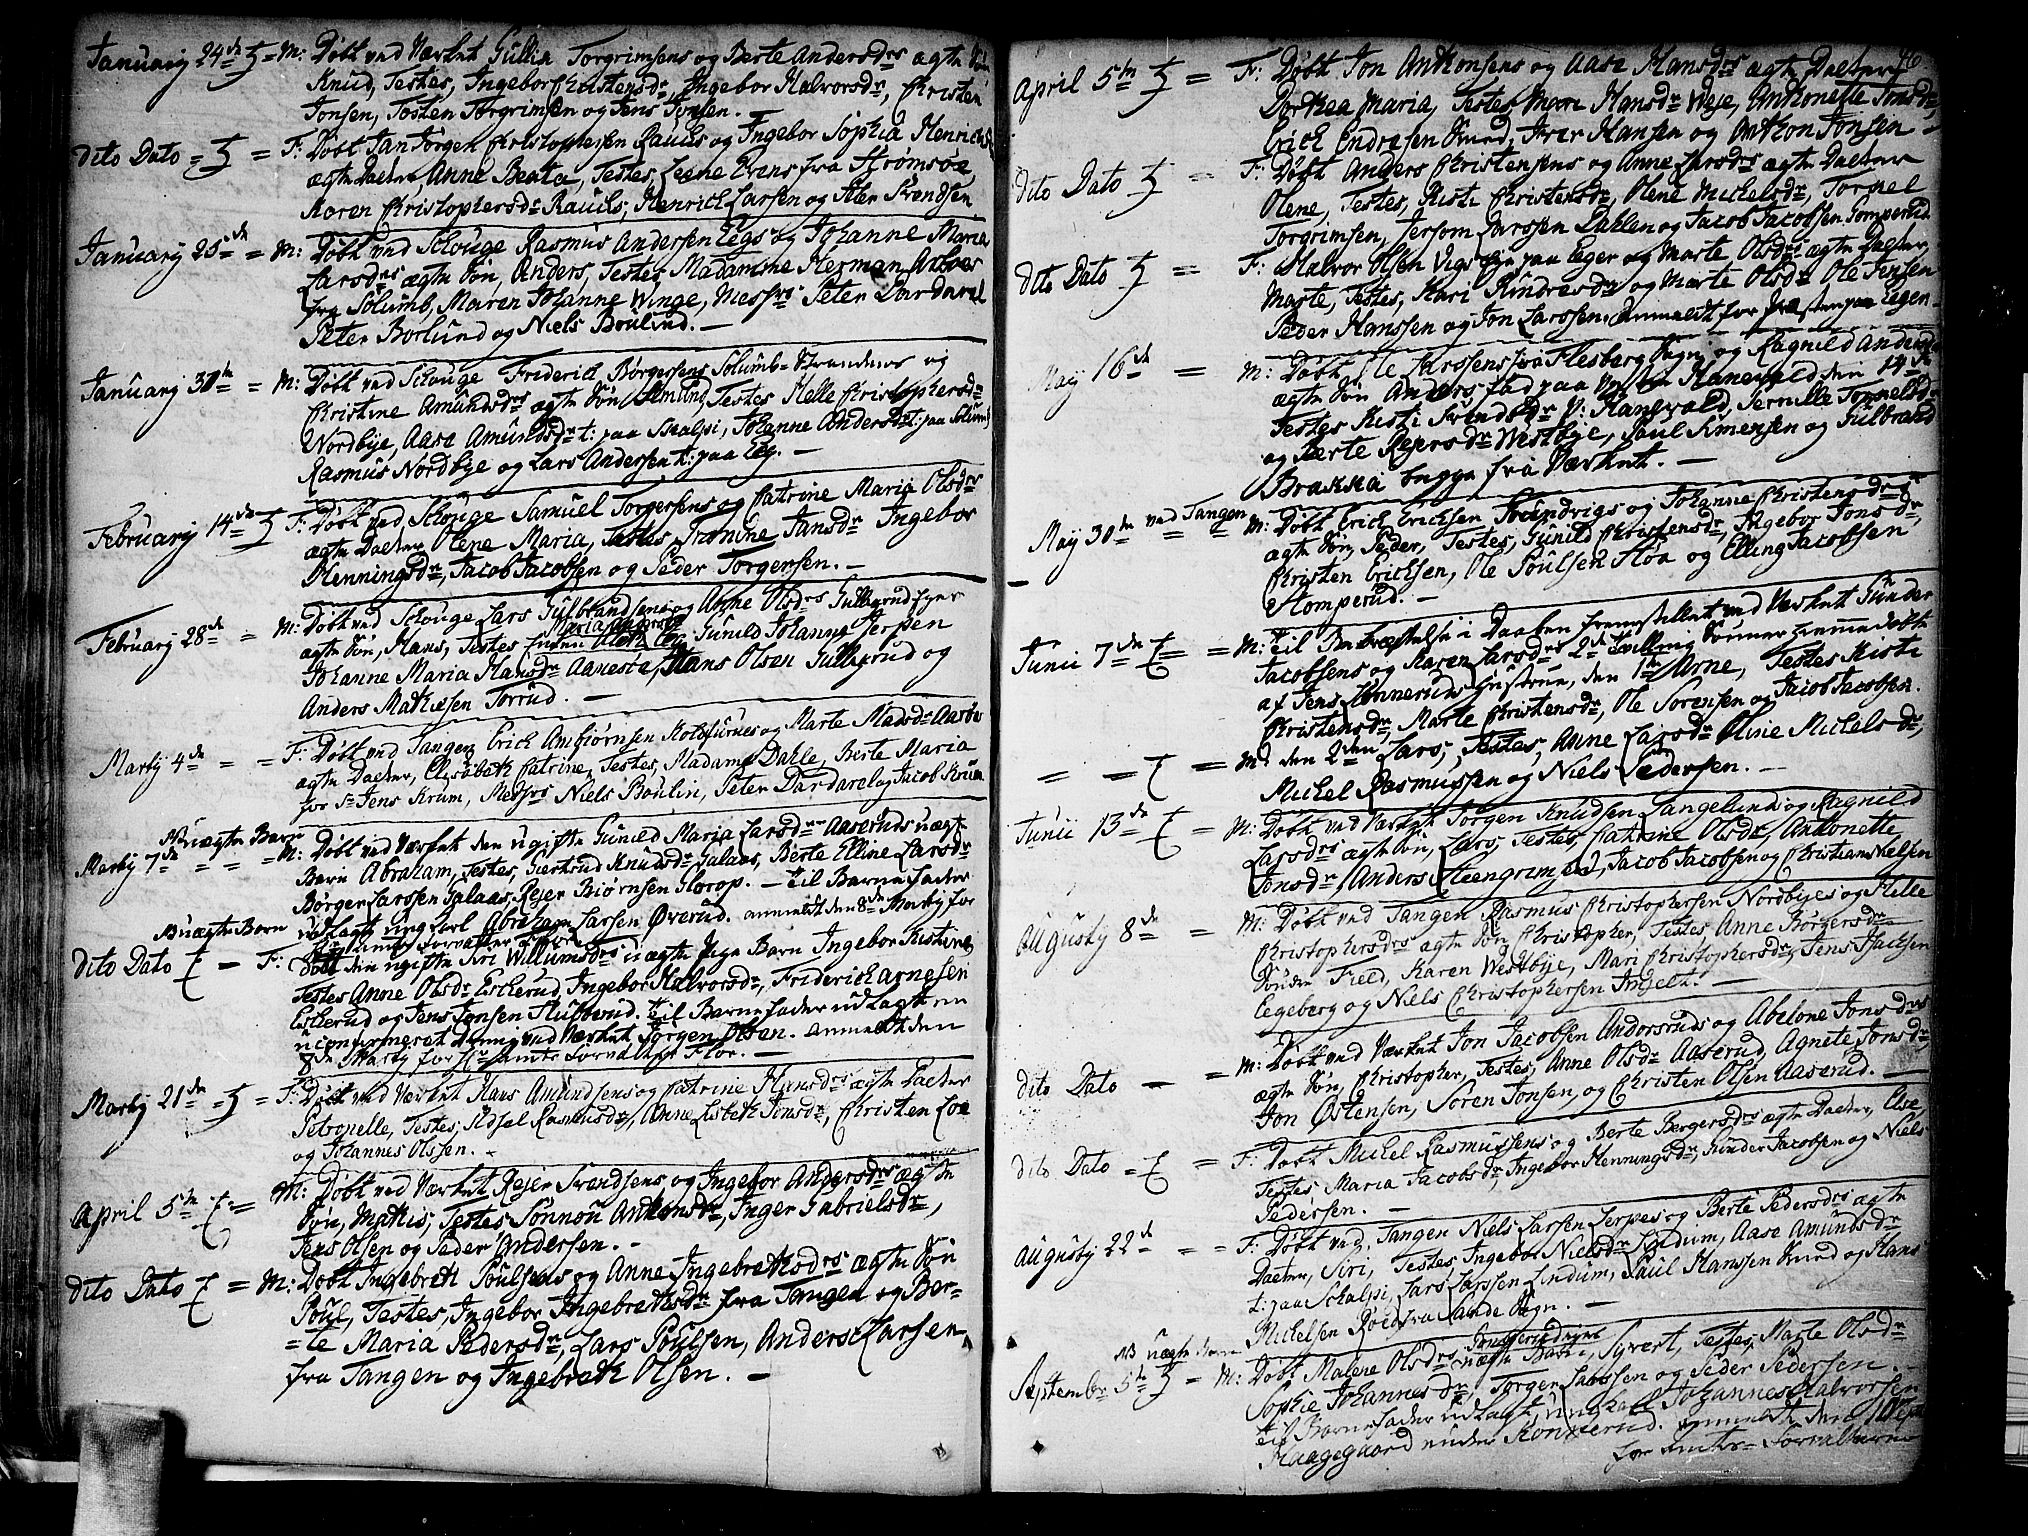 Januarij 24de = M: Døbt ved Værket Gullia Torgrimsens og Berte Andersdrs ægte Søn
Knud, Testes, Ingebor Christensdr, Ingebor Halvorsdr, Christen
Jonsen, Tosten Torgrimsen og Jens Jonsen.
Dito Dato = F: Døbt Jan Jørgen Christophersen Rauls og Ingebor Sophia Henrichsdrs
ægte Datter, Anne Beata, Testes, Leene Evens fra Strømsøe,
Karen Christophersdr Rauls, Henrich Larsen og Ater Svendsen
Januarij 25de = M: Døbt ved Schouge Rasmus Andersen Eegs og Johanne Maria
Larsdrs ægte Søn, Anders, Testes, Madamme Herman Arboes
fra Solumb, Maren Johanne Winge, Messrs Peter Dardarel
Peter Borlund og Niels Boulind. —
Januarij 30th = M: Døbt ved Schouge Frederic Børgersens Solumb-Strandenes og
Christine Amundsdrs ægte Søn Amund, Testes Helle Christophersdr
Nordbye, Aase Amundsdr t: paa Scalpi, Johanne Andersdr t: paa Solum
Rasmus Nordbye og Lars Andersen t: paa Eeg. —
Februarij 14de F: Døbt ved Schouge Samuel Torgersens og Catrine Maria Olsdrs
ægte Datter Olene Maria, Testes, Tronine Jansdr Ingebor
Henningsdr, Jacob Jacobsen og Peder Torgersen. —
Februarij 28de = M: Døbt ved Schouge Lars Gulbrandsens og Anne Olsdrs Gulbyrudsejer
ægte Søn, Hans, Testes Gunild Johanne Jerpen
Johanne Maria Hansdr Aanesta, Hans Olsen Gulbyrud og
Anders Mathiesen Torrud. —
Martij 4de = = F: Døbt ved Tangen Erich Ambiørnsen Koldfurnes og Marte Madsdr Aasbøe
ægte Datter, Elisabeth Catrine, Testes, Madame Dahle, Berte Maria
for Sr Jens Krum, Messrs Niels Boulin, Peter Dardarel og Jacob Krum
NB uægte Barn
Martij 7de = = M: Døbt ved Værket den ugifte Gunild Maria Larsdr Aaseruds uægte
Barn Abraham, Testes, Giertrud Knudsdr Galaas, Berte Elline Larsdr
Børger Larssen Galaas, Rejer Biørnsen Glorop. — Til Barne Fader
udlagt ung karl Abraham Larsen Øverud. anmeldt den 8de Martij for
NB uægte Barn
Dito Dato — F: Døbt den ugifte Siri Willumsdrs uægte Pige Barn Ingebor Kistine
Testes Anne Olsdr Eskerud, Ingebor Halvorsdr, Friderich Arnesen
Eskerud og Jens Jonsen Hubberud. Til Barne Fader udlagt en
uconfirmeret dreng ved Værket Jørgen Olsen. anmeldt den
8de Martij for Hr Amts Forvalter Flor. —
Martij 21de = F: Døbt ved Værket Hans Amundsens og Catrine Hansdrs ægte Datter
Petronelle, Testes, Adsel Rasmusdr, Anne Lisbeth Jonsdr, Christen Loe
og Johannes Olssen. —
April 5te = M: Døbt ved Værket Rejer Svendsens og Ingebor Andersdrs ægte
Søn, Mathis, Testes Sønnou Anthonsdr, Inger Gabrielsdr,
Jens Olsen og Peder Andersen. —
Dito Dato = M: Døbt Ingebreth Poulsens og Anne Ingebrethsdrs ægte Søn
Poul, Testes, Ingebor Ingebrethsdr fra Tangen og Ber-
=te Maria Pedersdr, Lars Poulsen, Anders Larsen
fra Tangen og Ingebreth Olsen. —
46
April 5te = F: Døbt Jon Anthonsens og Aase Hansdrs ægte Datter
Dorthea Maria, Testes, Mari Hansdr Weje, Anthonette Jonsdr,
Erich Endresen Smed, Iver Hansen og Anthon Jonsen —
Dito Dato = F: Døbt Anders Christensens og Anne Larsdrs ægte Datter
Olene, Testes, Kisti Christensdr, Olene Michelsdr, Torkel
Torgrimsen, Jersom Larssen Dahlen og Jacob Jacobsen Stomperud.
Dito Dato = F: Halvor Olsen Vigs Eje paa Eger og Marte Olsdrs ægte Datter,
Marte, Testes, Kari Sindresdr og Marte Olsdr Ole Jensen
Peder Hanssen og Jon Larssen. Anmeldt for Præsten paa Eger. —
May 16de = M: Døbt Ole Larssens fra Flesberg Sogn og Ragnild Andersdrs
ægte Søn Anders, fød paa Vestre Hanevold den 14de
Testes Kisti Svendsdr V: Hanevald, Pernille Tommelsdr
og Berte Rejersdr Westbye, Paul Simensen og Gulbrand
Brakka begge fra Værket. —
May 30de ved Tangen = M: Døbt Erich Ericksen Svendvigs og Johanne Christensdrs
ægte Søn, Peder, Testes, Gunild Christensdr, Ingebor Jonsdr,
Christen Ericksen, Ole Poulsen Høa og Elling Jacobsen
Stomperud. —
Junii 7de = M: Til Daaben fremstillet ved Værket Gunder
Jacobsens og Karen Larsdrs 2de Tvilling Sønner hjemmedøbte
af Jens Lønneruds Hustrue, den 1ste Arne, Testes Kisti
Christensdr, Marte Christensdr, Ole Sørensen og Jacob Jacobsen.
= — = M: den 2den Lars, Testes, Anne Larsdr Oline Michelsdr,
Michel Rasmussen og Niels Pedersen. —
Junii 13de = M: Døbt ved Værket Jørgen Knudsen Langelunds og Ragnild
Larsdrs ægte Søn, Lars, Testes, Catrine Olsdr, Anthonette
Jonsdr, Anders Steengrimsen, Jacob Jacobsen og Christian Nielsen
Augustij 8de = M: Døbt ved Tangen Rasmus Christophersen Nordbyes og Helle
Christophersdrs ægte Søn Christopher, Testes Anne Børgersdr
Field, Karen Westbye, Mari Christophersdr, Jens Jacksen
Egeberg og Niels Christophersen Ingelt. —
Dito Dato — = M: Døbt ved Værket Jon Jacobsen Andorsruds og Abelone Jonsdrs
ægte Søn, Christopher, Testes, Anne Olsdr Aaserud, Agnete Jonsdr,
Jon Østensen, Soren Jonsen, og Christen Olsen Aaserud. —
Dito Dato = = F: Døbt Michel Rasmussens og Berte Bergersdrs ægte Datter, Else,
Testes Maria Jacobsdr, Ingebor Henningsdr, Gunder Jacobsen og Niels
Pedersen. —
Augustij 22de = = F: Døbt ved Tangen Niels Larsen Jerpes og Berte Pedersdrs ægte
Datter, Siri, Testes, Ingebor Nielsdr Lindum, Aase Amundsdr
t: paa Schalpi, Lars Larssen Lindum, Paul Hanssen Smed og Hans
Michelsen Røed fra Sande Sogn. —
NB uægte Barn
September 5te = M: Døbt Malene Olsdrs uægte Barn, Syvert, Testes, Marte Olsdr
Sophie Johannesdr, Jørgen Larssen og Peder Pedersen. —
til Barne Fader udlagt, ungkarl Johannes Halvorsen
Haagegaard under Konnerud. Anmeldt den 10 Sept
for Amts-Forvalteren